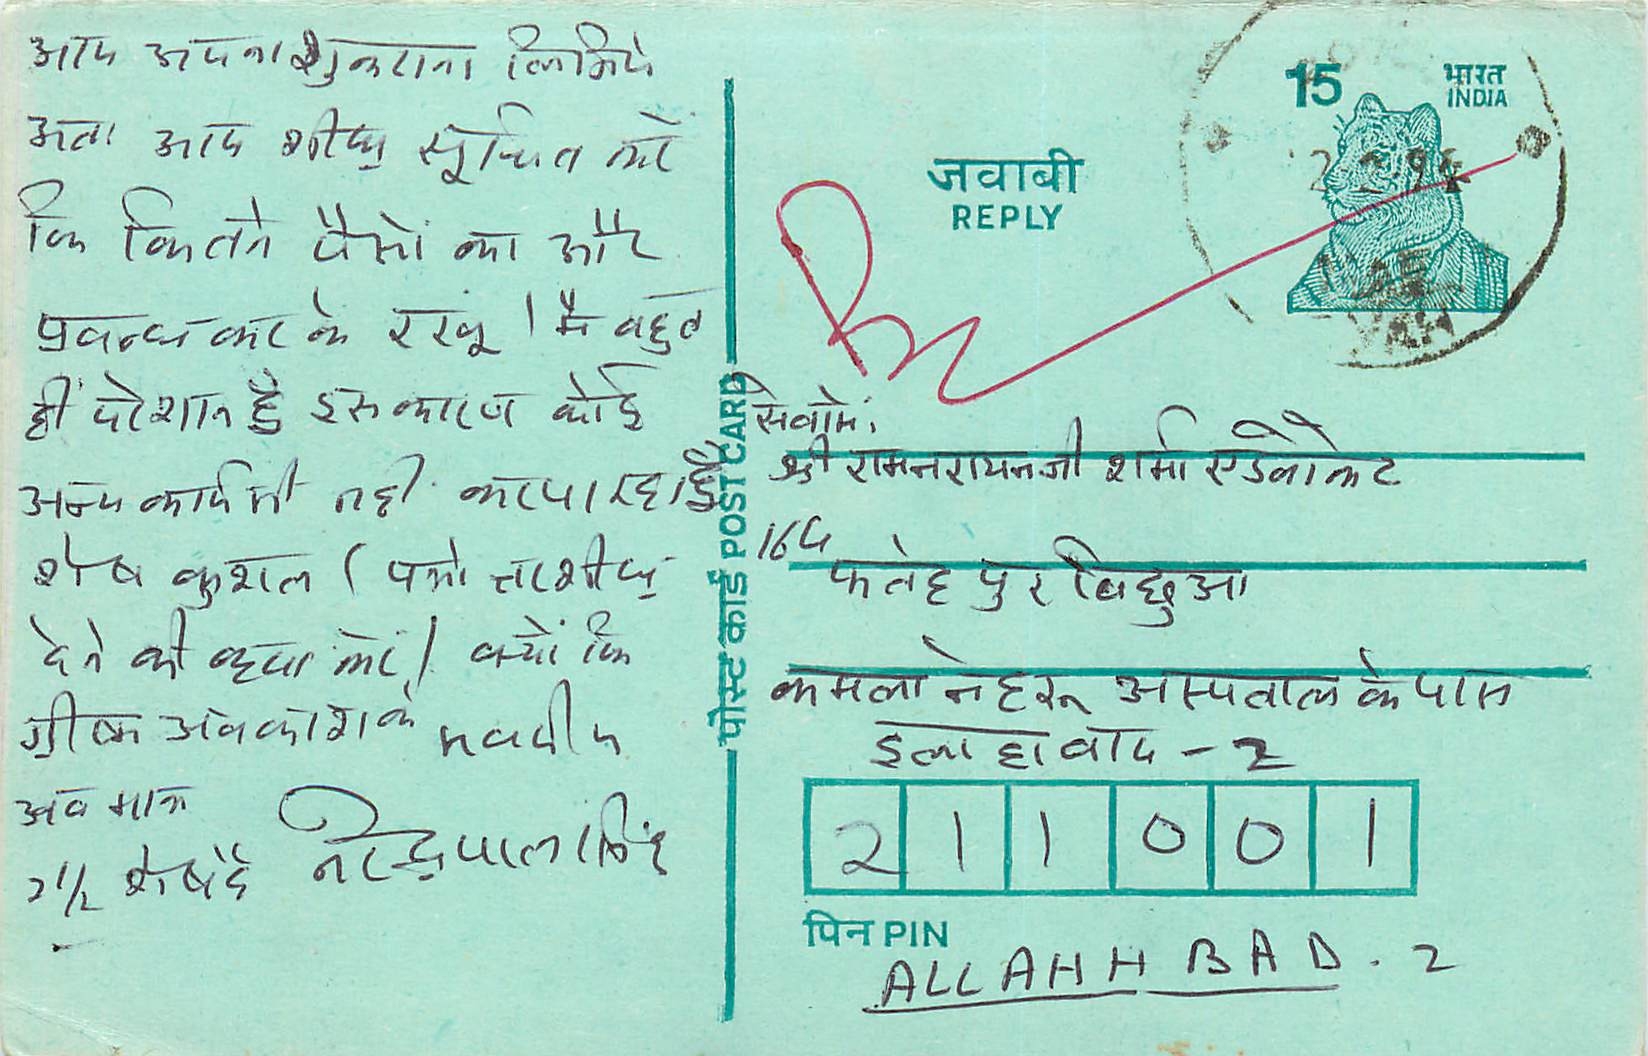 आप अपना शुकराना लिखिये
अतः आप शीघ्र सूचित करें
कि कितने पैसों का और
प्रबन्ध कर के रखू। मैं बहुत
ही परेशान हूँ इस कारण कोई
अन्य कार्य भी नहीं कर पा रहा हूँ
शेष कुशल। पत्रोत्तर शीघ्र
देने की कृपा करें। क्यों कि
ग्रीष्म अवकाश के
अब मात्र
2 1/2 शेष है
भवदीय
नरेन्द्रपाल सिंह
पोस्ट कार्ड POST CARD
जवाबी
REPLY
15
भारत
INDIA
सेवामें,
श्री रामनरायनजी शर्मा एडवोकेट
16C
फतेहपुर बिछुआ
कमला नेहरू अस्पताल के पास
इलाहाबाद - 2
211001
पिन PIN
ALLAHHBAD. 2